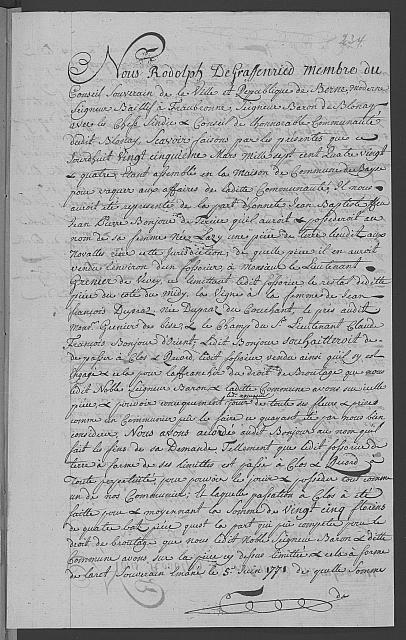 234.
Nous Rodolph DeGraffenried membre du
Conseil Souverain de la Ville et Republique de Berne, moderne
Seigneur Baillif à Fraubronne, Seigneur Baron de Blonay
avec les Chefs Sindic & Conseil de l'honnorable Communauté
dudit Blonay, Scavoir faisons par les presentes que ce
Jourdhuit Vingt cinquieme Mars mille sept cent Quatre Vingt
& quatre Etant assemblé en la Maison de Commune de
pour vaquer aux affaires de laditte Communauté Il nous
auroit eté representer de la part d'honneté Jean Baptiste ffeu
Jean Pierre Bonjour qu'il auroit & possederoit au
nom de sa femme née une pièce de terre lieudit aux
Novalles rière cette Jurisdiction, de quelle pièce il en auroit
vendu l'environ d'un fossorier à Monsieur le Lieutenant
Grenier de Vevey, se limittant ledit fossorier le reste de ditte
pièce du coté du midy, les Vignes à la femme de Jean
François Dupraz née Dupraz du Couchant, le prez audit
Monsr. Grenier des bise, & le Champ du Sr. Lieutenant Claude
François Bonjour d'orient, Ledit Bonjour souhaitteroit de
passer à Clos & Record ledit fossorier vendu ainsi qu'il sy est
Engagé & cela pour l'affranchir du droit de Broutage que nous
ledit Noble Seigneur Baron & laditte Commune avons sur icelle
pièce, & pouvoir conséquemment Jouir de toute ses fleurs & prises
comme un Communier peut le faire ce qu'ayant été par nous bien
considerer Nous avons accordé audit Bonjour au nom qu'il
fait les fins de sa Demande, Tellement que ledit fossorier de
terre à forme de ses limittes est passé à Clos & Record à
Toute perpetuité pour pouvoir le jouir & posseder tout comme
un de nos Communier; & laquelle passation à Clos à eté
faitte pour & moyennant la Somme de Vingt cinq florins
de quatre batz pièce quest la part qui peut competer pour le
droit de broutage que nous ledit Noble Seigneur Baron & ditte
Commune avons sur la pièce cy dessus limittée & cela à forme
de laret Souverain Emané le 5e. Juin 1771 de quelle Somme
de